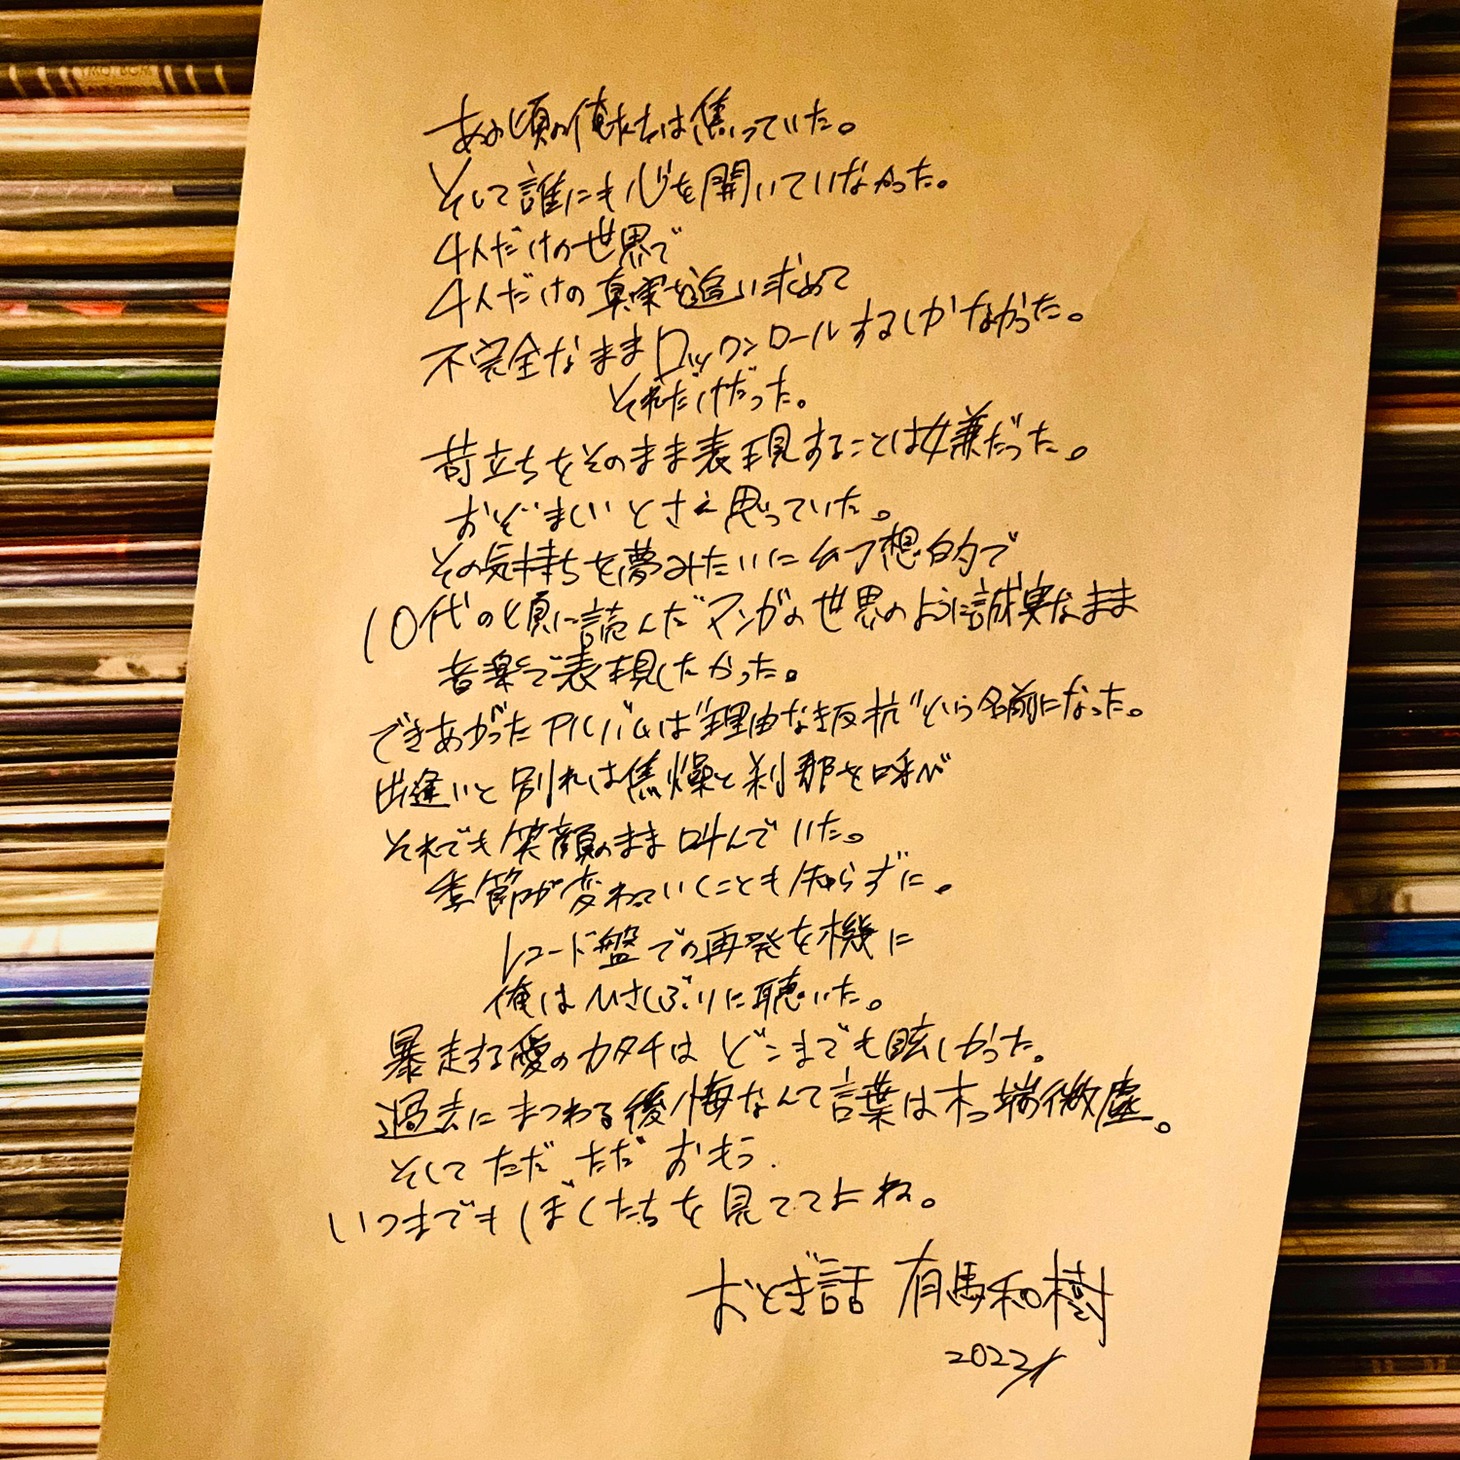 YMO/BGM
あの頃の俺たちは焦っていた。
そして誰にも心を開いていなかった。
4人だけの世界で
4人だけの真実を追い求めて
不完全なままロックンロールするしかなかった。
それだけだった。
苛立ちをそのまま表現することは嫌だった。
おぞましいとさえ思っていた。
その気持ちを夢みたいに幻想的で
10代の頃に読んだマンガの世界のように誠実なまま
音楽で表現したかった。
できあがったアルバムは"理由なき反抗"という名前になった。
出逢いと別れは焦燥と刹那を呼び
それでも笑顔のまま叫んでいた。
季節が変わっていくことも知らずに。
レコード盤での再発を機に
俺はひさしぶりに聴いた。
暴走する愛のカタチはどこまでも眩しかった。
過去にまつわる後悔なんて言葉は木っ端微塵。
そしてただただおもう.
いつまでもぼくたちを見ててよね。
おとぎ話 有馬和樹
2022/1